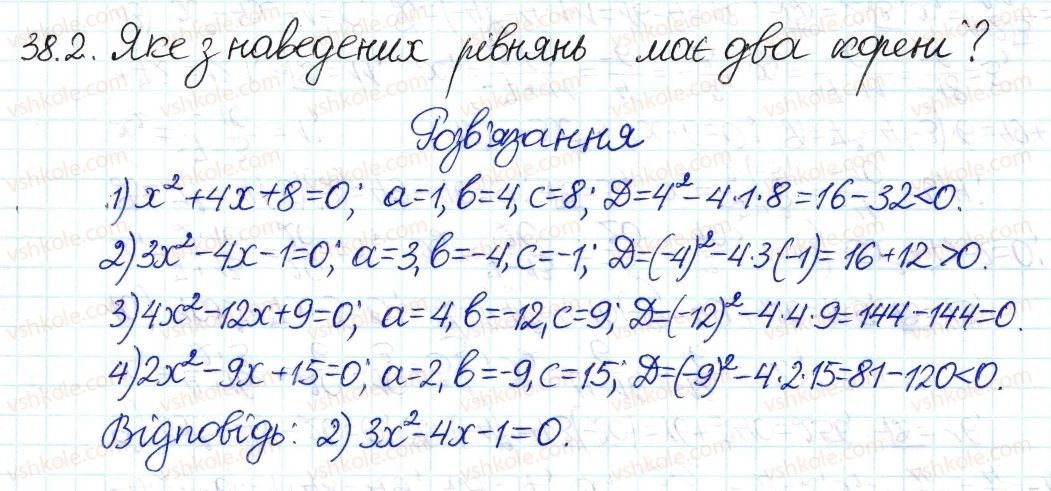 38.2. Яке з наведених рівнянь має два корені?
Розв'язання
1) x²+4x+8=0; a=1, b=4, c=8; Д=4²-4·1·8=16-32<0.
2) 3x²-4x-1=0; a=3, b=-4, c=-1; Д=(-4)²-4·3(-1)=16+12>0.
3) 4x²-12x+9=0; a=4, b=-12, c=9; Д=(-12)²-4·4·9=144-144=0.
4) 2x²-9x+15=0; a=2, b=-9, c=15; Д=(-9)²-4·2·15=81-120<0.
Відповідь: 2) 3x²-4x-1=0.